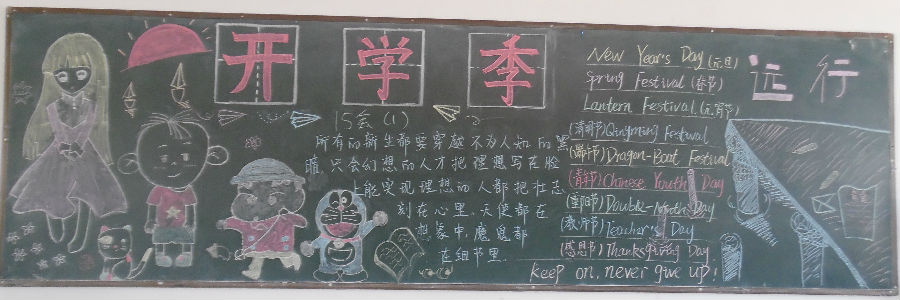 开学季
15会(1)
所有的新生都要穿越不为人知的黑
暗,只会幻想的人才把理想写在脸
上能实现理想的人都把壮志
刻在心里,天使都在
想象中,魔鬼都
在细节里.
New Year's Day (元旦)
Spring Festival (春节)
Lantern Festival (元宵节)
(清明节) Qingming Festival
(端午节) Dragon-Boat Festival
(青年节) Chinese Youth Day
(重阳节) Double-Ninth Day
(教师节) Teacher's Day
(感恩节) Thanksgiving Day
keep on, never give up!
远行